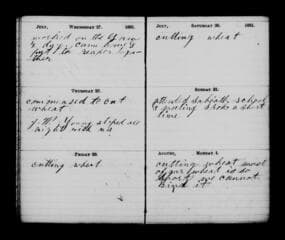 JULY, WEDNESDAY 27. 1881.
worked on the
day. came home &
reaper
THURSDAY 28.
commensed to cut
wheat
Young stoped all
night with us
FRIDAY 29.
cutting wheat
JULY, SATURDAY 30. 1881.
cutting wheat
SUNDAY 31.
attended Sabbath school
a short
time
AUGUST, MONDAY 1.
cutting wheat most
of our wheat is so
short we cannot
bind it